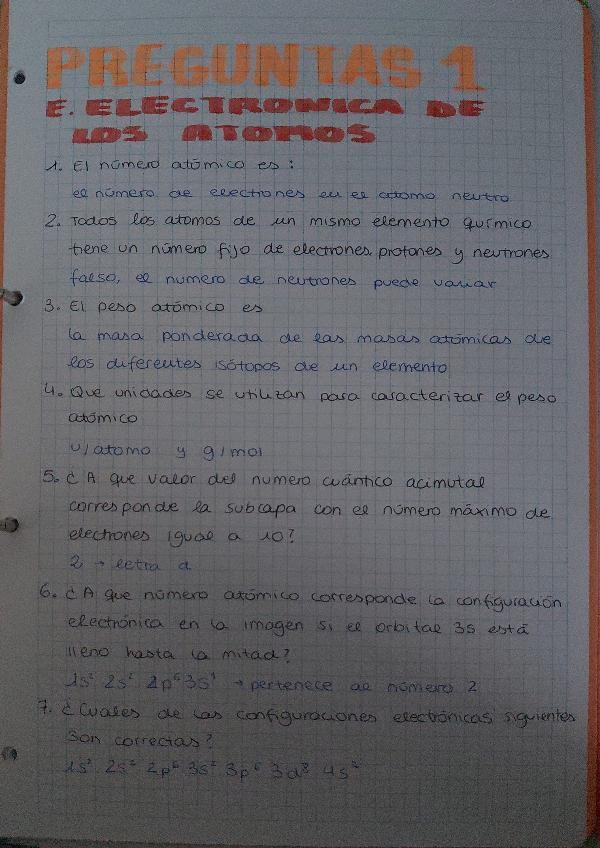 PREGUNTAS 1
E. ELECTRONICA DE
LOS ATOMOS
1. El número atómico es:
el número de electrones en el átomo neutro
2. Todos los atomos de un mismo elemento químico
tiene un número fijo de electrones, protones y neutrones
falso, el numero de neutrones puede variar
3. El peso atómico es
la masa ponderada de las masas atómicas de
los diferentes isótopos de un elemento
4. Que unidades se utilizan para caracterizar el peso
atómico
u/atomo y g/mol
5. ¿A que valor del numero cuántico acimutal
corresponde la subcapa con el número máximo de
electrones igual a 10?
2 → letra d
6. ¿A que número atómico corresponde la configuración
electrónica en la imagen si el orbital 3s está
lleno hasta la mitad?
1s² 2s² 2p⁶ 3s¹ → pertenece al número 2
7. ¿Cuales de las configuraciones electrónicas siguientes
son correctas?
1s² 2s² 2p⁶ 3s² 3p⁶ 3d⁸ 4s²